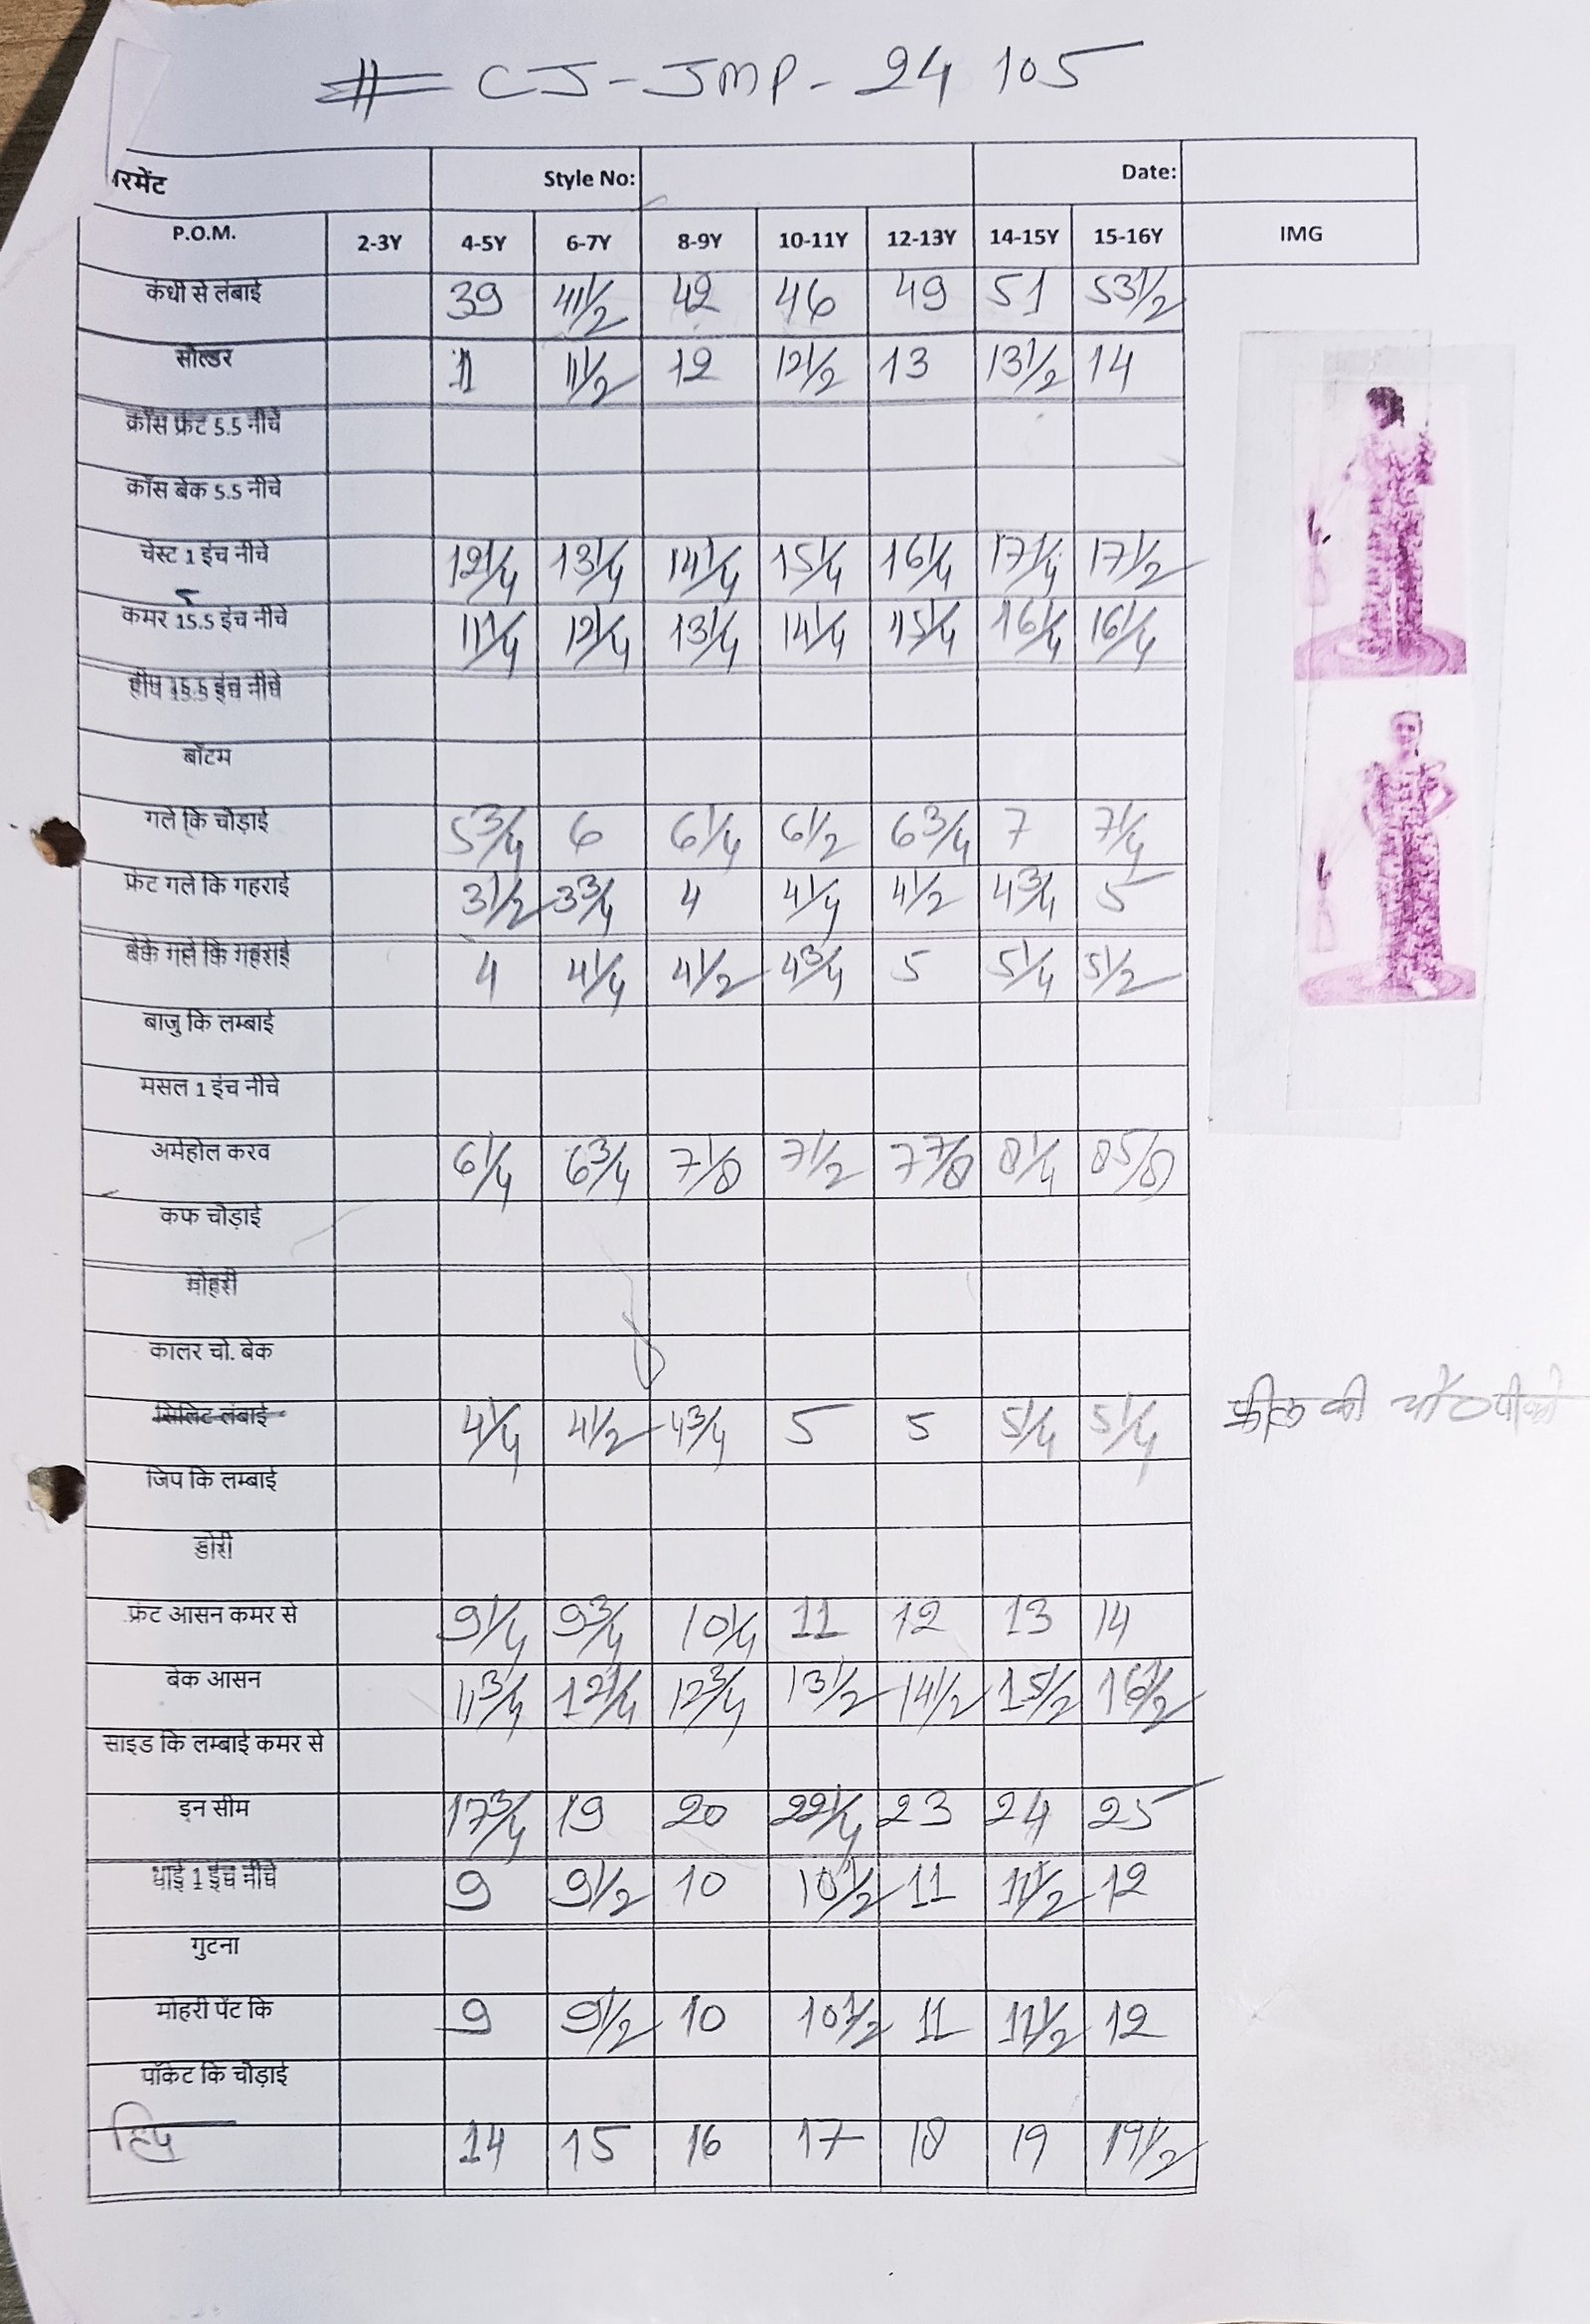 # CJ-JMP-24 105
रमेंट Style No: Date:
P.O.M. 2-3Y 4-5Y 6-7Y 8-9Y 10-11Y 12-13Y 14-15Y 15-16Y IMG
कंधी से लंबाई 39 41 1/2 42 46 49 51 53 1/2
सोल्डर 11 11 1/2 12 12 1/2 13 13 1/2 14
क्रॉस फ्रंट 5.5 नीचे
क्रॉस बेक 5.5 नीचे
चेस्ट 1 इंच नीचे 12 1/4 13 1/4 14 1/4 15 1/4 16 1/4 17 1/4 17 1/2
5
कमर 15.5 इंच नीचे 11 1/4 12 1/4 13 1/4 14 1/4 15 1/4 16 1/4 16 1/4
हीप 15.5 इंच नीचे
बॉटम
गले कि चोड़ाई 5 3/4 6 6 1/4 6 1/2 6 3/4 7 7 1/4
फ्रंट गले कि गहराई 3 1/2 3 3/4 4 4 1/4 4 1/2 4 3/4 5
बेके गले कि गहराई 4 4 1/4 4 1/2 4 3/4 5 5 1/4 5 1/2
बाजु कि लम्बाई
मसल 1 इंच नीचे
अर्महोल करव 6 1/4 6 3/4 7 1/8 7 1/2 7 7/8 8 1/4 8 5/8
कफ चोड़ाई
मोहरी
कालर चो. बेक
सिलिट लंबाई 4 1/4 4 1/2 4 3/4 5 5 5 1/4 5 1/4 की
जिप कि लम्बाई
डोरी
फ्रंट आसन कमर से 9 1/4 9 3/4 10 1/4 11 12 13 14
बेक आसन 11 3/4 12 1/4 12 3/4 13 1/2 14 1/2 15 1/2 16 1/2
साइड कि लम्बाई कमर से
इन सीम 17 3/4 19 20 22 1/4 23 24 25
थाई 1 इंच नीचे 9 9 1/2 10 10 1/2 11 11 1/2 12
गुटना
मोहरी पेंट कि 9 9 1/2 10 10 1/2 11 11 1/2 12
पॉकेट कि चोड़ाई
हिप 14 15 16 17 18 19 19 1/2